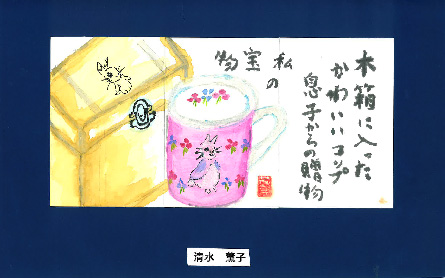 木箱に入った
かわいいコップ
息子からの贈物
私の
宝物
清水 薫子